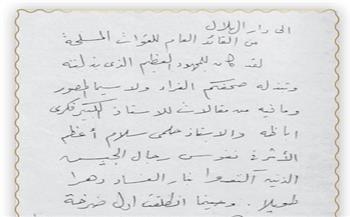 الى دار الهلال
من القائد العام للقوات المسلحة
لقد كان للمجهود العظيم الذى بذلته
وتبذله صحفكم الغراء ولا سيما المصور
وما فيه من مقالات للاستاذ الكبير فكرى
اباظه والاستاذ حلمى سلام أعظم
الأثر فى نفوس رجال الجيش
الذين اكتووا بنار الفساد دهرا
طويلا. وحينما انطلقت اول صرخة